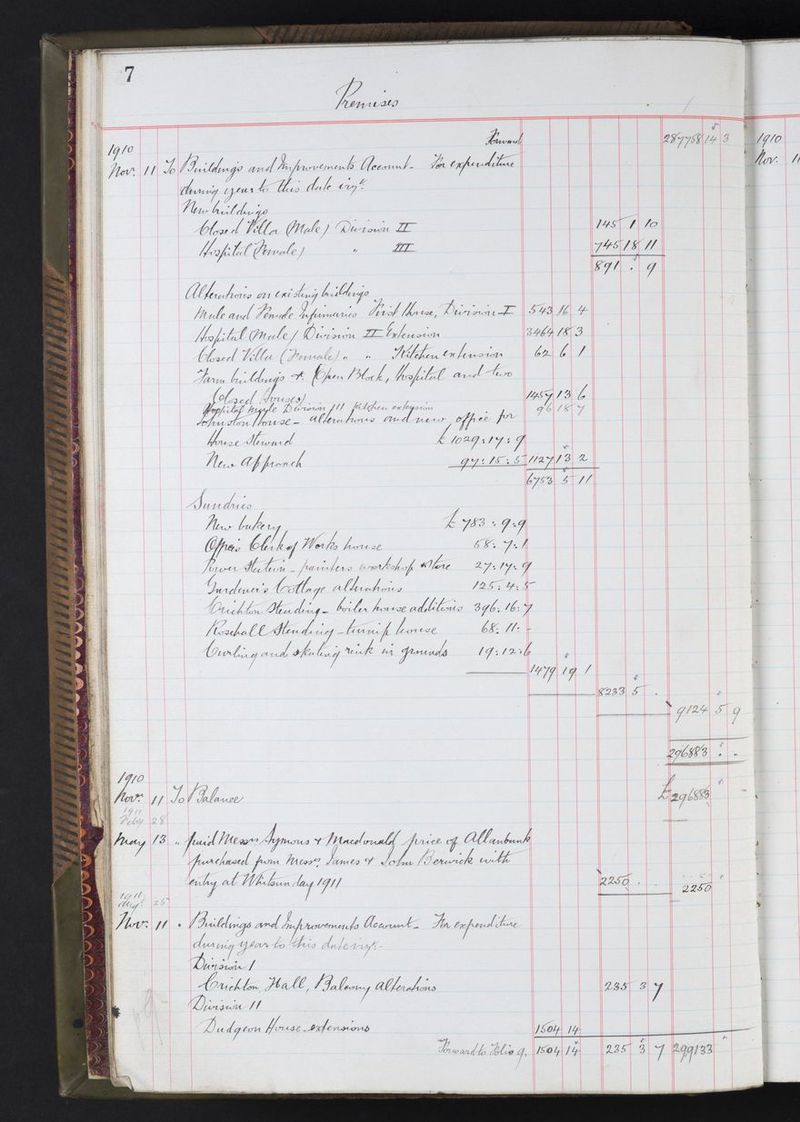 7
Premises
Forward 287758 14 3
1910
Nov. 11 To Buildings and Improvements Account - For expenditure
during year to this date vizt.
New buildings
Closed Villa (Male) Division II 145 1 10
Hospital (Female) " III 745 18 11
891 . 9
Alterations on existing buildings
Male and Female Infirmaries First House, Division I 543 16 4
Hospital (Male) Division II Extension 3464 18 3
Closed Villa (Female) " " Kitchen extension 62 6 1
Farm buildings & (Open Block, Hospital and two
Closed Houses) 1457 13 6
Hospital Male Division III kitchen extension 96 18 7
Johnston House - alterations and new office for
House Steward £ 1029 : 17 : 9
New approach 97 : 15 : 5 1127 13 2
6753 5 11
Sundries
New bakery £ 783 : 9 : 9
Offices Clerk of Works house 58 : 7 : 1
Power Station - painters workshop & store 27 : 17 : 9
Gardener's Cottage alterations 125 : 4 : 5
Crichton Steading - boiler house additions 396 : 16 : 7
Rosehall Steading - turnip house 68 : 11 : -
Curling and skating rink in grounds 19 : 12 : 6
1479 19 1
8233 5 .
9124 5 9
296883 . -
1910
Nov. 11 To Balance £ 296883
1911
Feby 28
May 13 " paid Messrs Symons & Macdonald price of Allanbank
purchased from Messrs. James & John Berwick with
entry at Whitsunday 1911 2250 . 2250
1911
25
Nov. 11 " Buildings and Improvements Account - For expenditure
during year to this date vizt. -
Division I
Crichton Hall, Balcony alterations 235 3 7
Division II
Dudgeon House - extensions 1504 14
Forward to Folio 9. 1504 14 235 3 7 299133
1910
Nov. 11